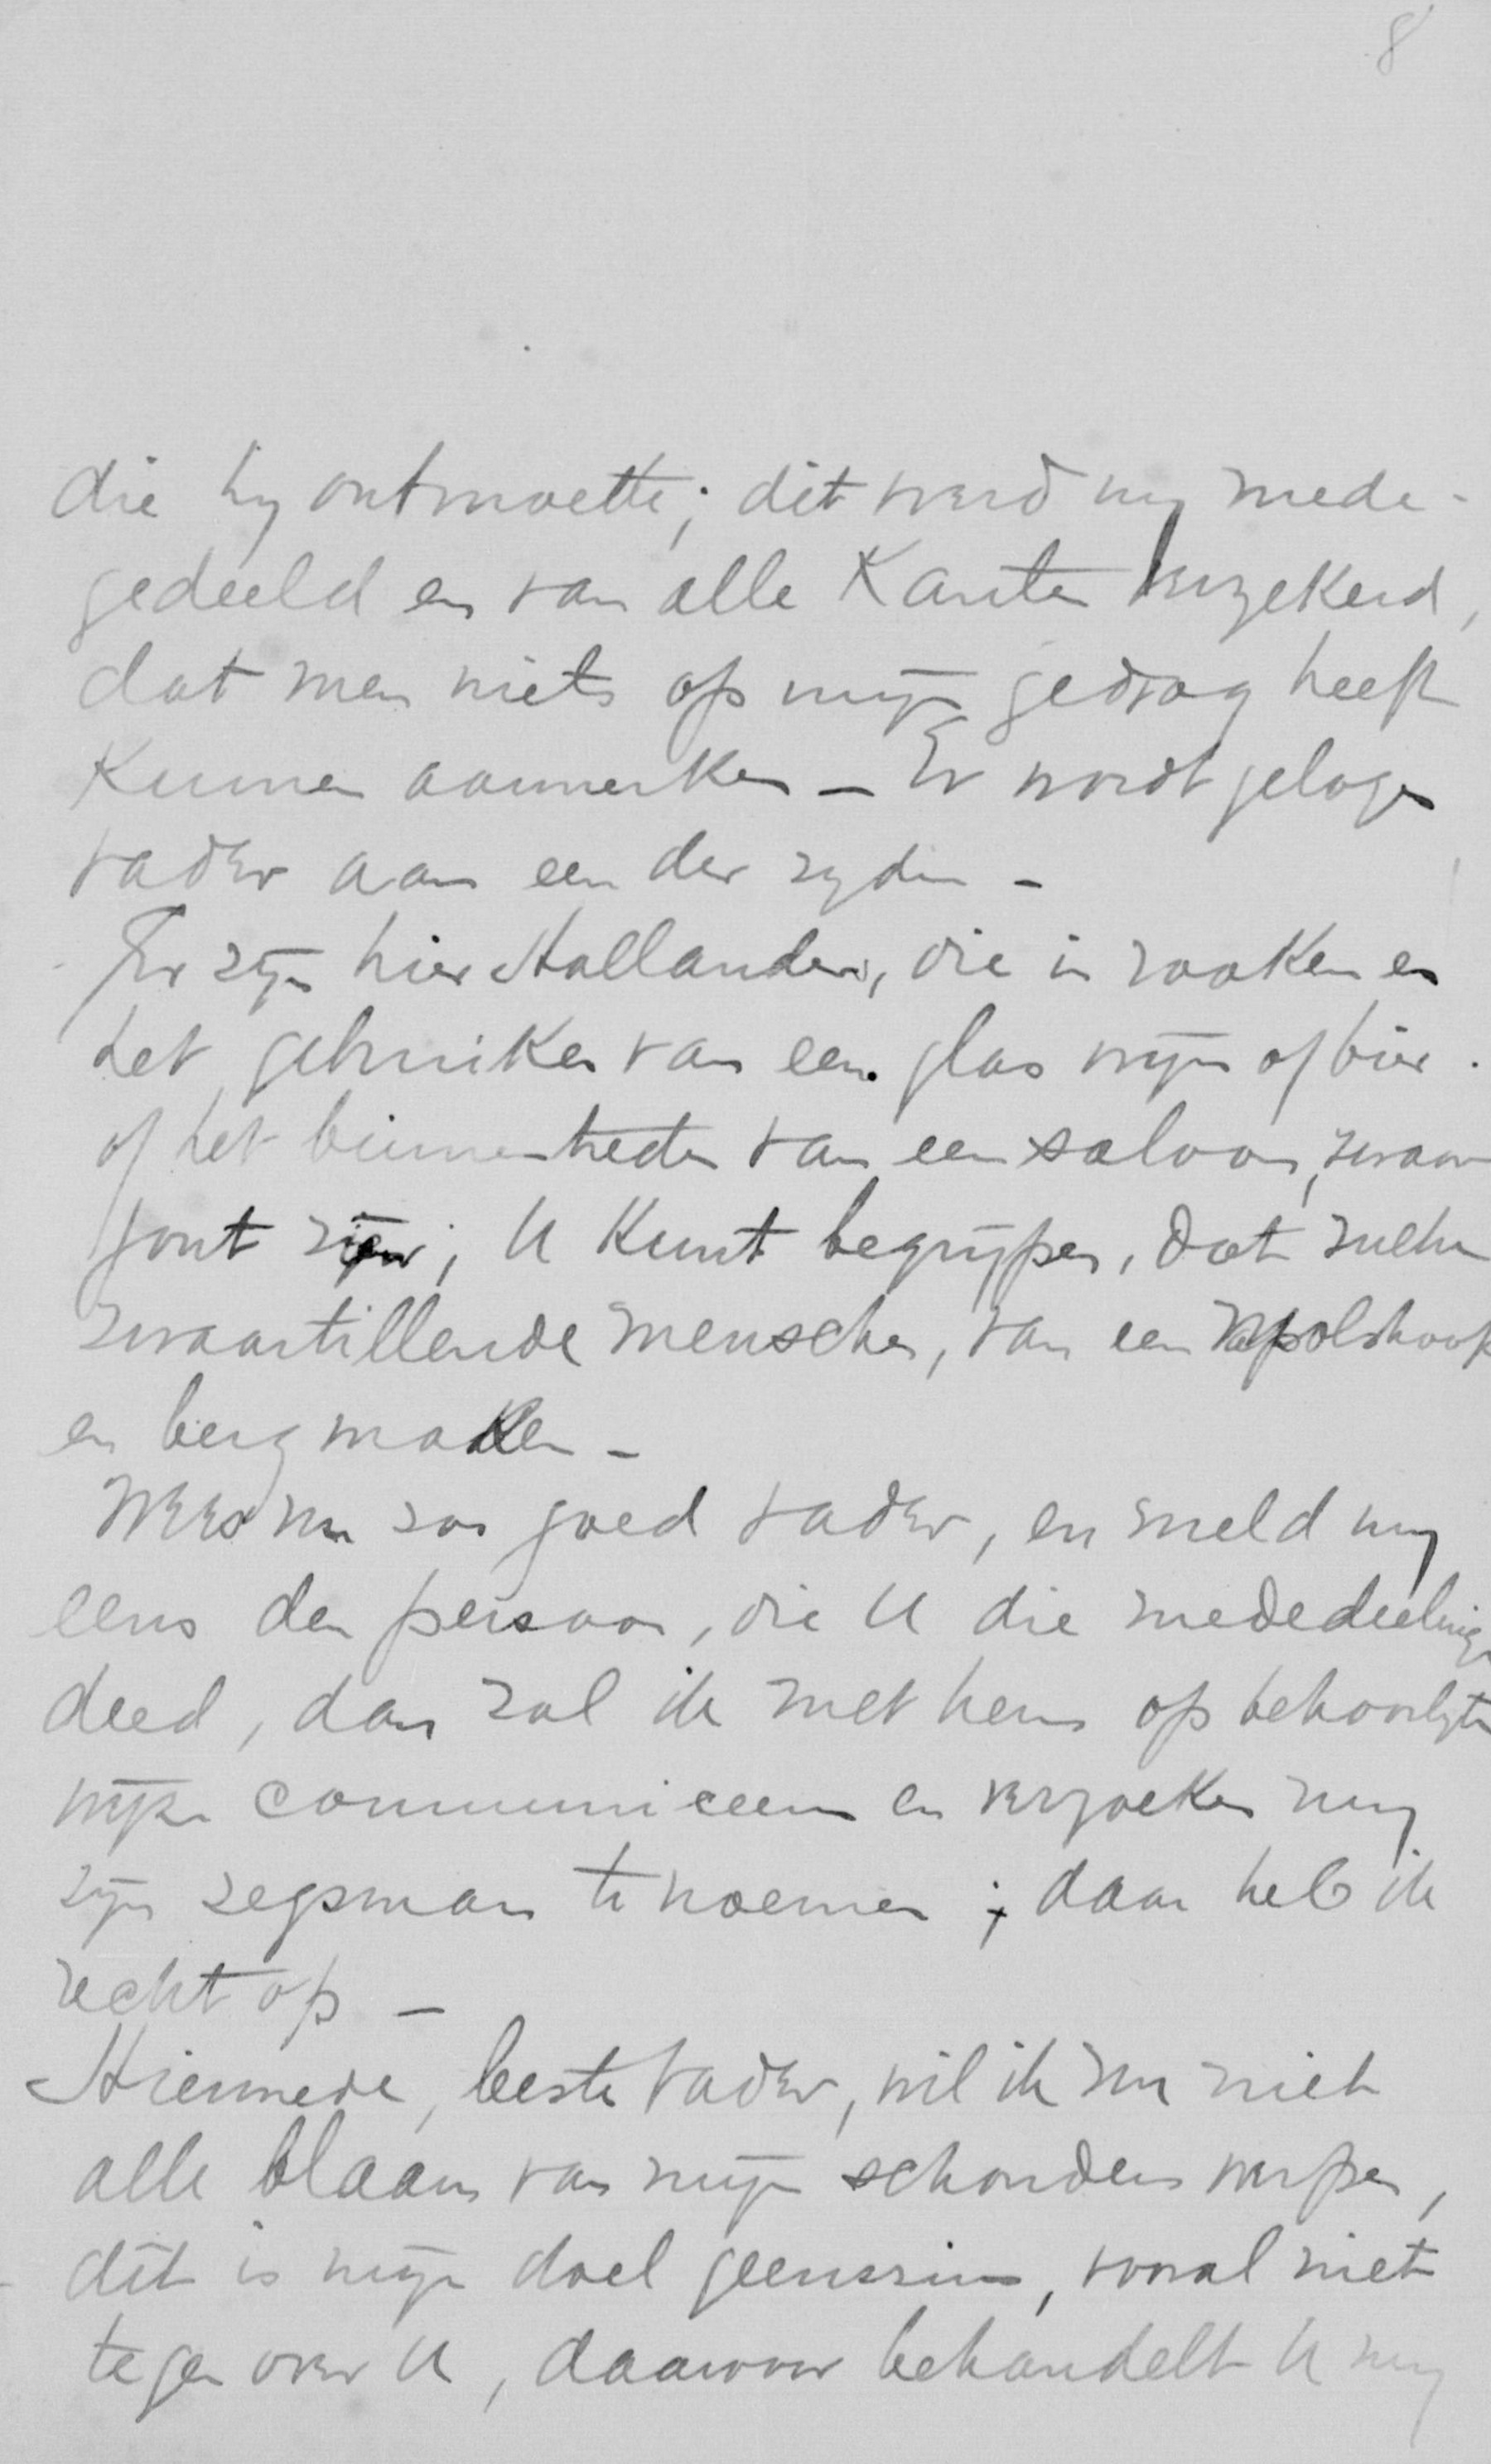 8
die hy ontmoette; dit werd my mede-
gedeeld en van alle Kanten verzekerd,
dat men niets op mijn gedrag heeft
Kunnen aanmerken – Er wordt gelogen
vader aan een der zyden –
Er zijn hier Hollanders, die in rooken en
het gebruiken van een glas wijn of bier.
of het binnentreden van een saloon, zwaar
fout zien; U Kunt begrijpen, dat zulke
zwaartillende menschen, van een molshoop
en berg maken –
Wees nu zoo goed vader, en meld my
eens den persoon, die U die mededeelingen
deed, dan zal ik met hem op behoorlijke
wijze communiceeren en verzoeken my
zijn zegsman te noemen; daar heb ik
recht op –
Hiermede, beste vader, wil ik nu niet
alle blaam van mijn schouders werpen,
dit is mijn doel geenszins, vooral niet
tegen over U, daarvoor behandelt U my